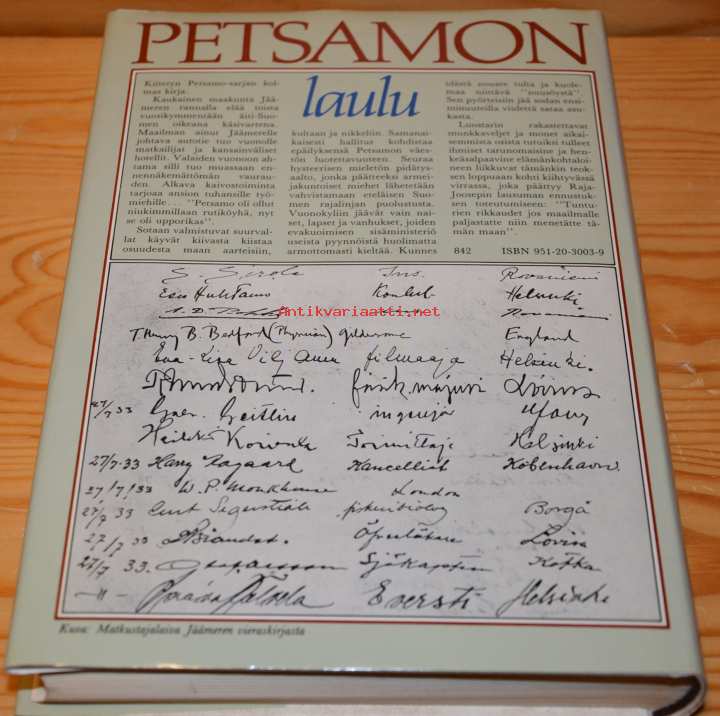 PETSAMON
laulu
Kiiteryn Petsamo-sarjan kol-
mas kirja.
Kaukainen maakunta Jää-
meren rannalla elää toista
vuosikymmentään äiti-Suo-
men oikeana käsivartena.
Maailman ainut Jäämerelle
johtava autotie tuo vuonolle
matkailijat ja kansainväliset
hotellit. Valaiden vuonoon ah-
tama silli tuo muassaan en-
nennäkemättömän vaurau-
den. Alkava kaivostoiminta
tarjoaa ansion tuhansille työ-
miehille... "Petsamo oli ollut
niukimmillaan rutiköyhä, nyt
se oli upporikas".
Sotaan valmistuvat suurval-
lat käyvät kiivasta kiistaa
osuudesta maan aarteisiin,
kultaan ja nikkeliin. Samanai-
kaisesti hallitus kohdistaa
epäilyksensä Petsamon väes-
tön luotettavuuteen. Seuraa
hysteerisen mieletön pidätys-
aalto, jonka päätteeksi armei-
jakuntoiset miehet lähetetään
vahvistamaan eteläisen Suo-
men rajalinjan puolustusta.
Vuonokyliin jäävät vain nai-
set, lapset ja vanhukset, joiden
evakuoimisen sisäministeriö
useista pyynnöistä huolimatta
armottomasti kieltää. Kunnes
idästä nousee tulta ja kuole-
maa niittävä "nuijöystä".
Sen pyörteisiin jää sodan ensi-
minuuteilla viidettä sataa asu-
kasta.
Luostarin rakastettavat
munkkaveljet ja monet aikai-
semmista osista tutuiksi tulleet
ihmiset tarunomaisine ja hen-
keäsalpaavine elämänkohtaloi-
neen liikkuvat tämänkin teok-
sen loppuaan kohti kiihtyvässä
virrassa, joka päättyy Raja-
Joosepin lausuman ennustuk-
sen toteutumiseen: "Tuntu-
rien rikkaudet jos maailmalle
paljastatte niin menetätte tä-
män maan".
842 ISBN 951-20-3003-9
Antikvariaatti.net
S. Sirola Ins. Rovaniemi
Esko Huhtamo Helsinki
Rovaniemi
T. Henry B. Bedford England
Eva-Lisa Viljanen filmaaja Helsinki.
27/7 33 Geitlin
Heikki Koivula Toimittaja Helsinki
27/7-33 Harry Aagaard Kancellist København.
27/7/33 W. P. Monkhouse London
27/7 33 Curt Segerstråle Borgå
27/7 33 Lovisa
27/7 33. Sjökapten Kotka
-"- Eversti Helsinki
Kuva: Matkustajalaiva Jäämeren vieraskirjasta